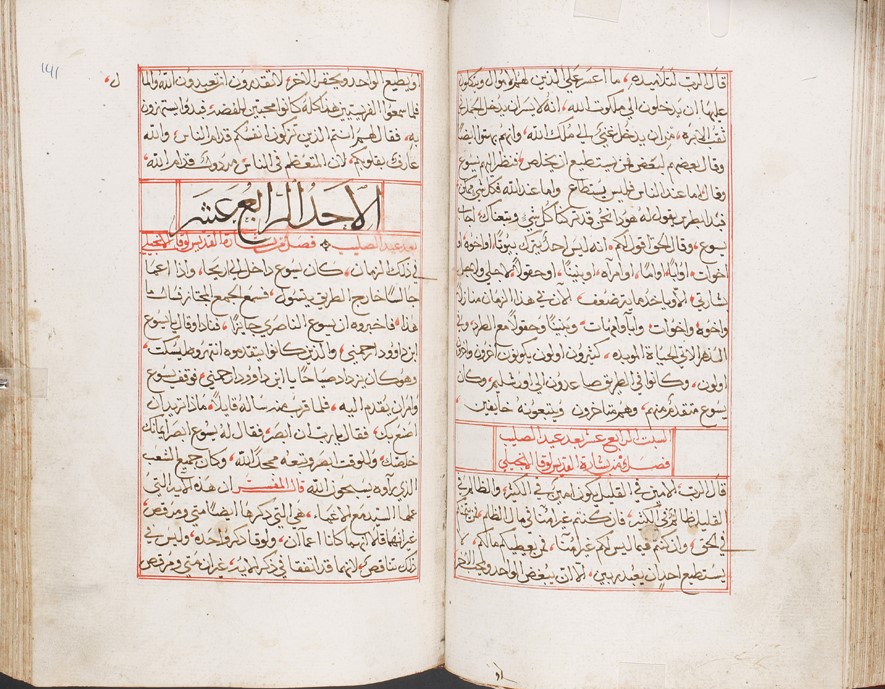 قال الرب لتلاميذه، ما اعسر على الذين لهم الاموال ويتكلون
عليها ان يدخلون الى ملكوت الله، انه لايسر ان يدخل الجمل في
ثقب الابره، من ان يدخل غني الى ملك الله، وانهم بهتوا ايضا
وقال بعضهم لبعض فمن يستطيع ان يخلص، فنظر اليهم يسوع
وقال، اما عند الناس فليس يستطاع، واما عند الله فكل شي ممكن
فبدا بطرس يقول له هوذا نحن قد تركنا كل شي، وتبعناك، اجاب
يسوع، وقال الحق اقول لكم، انه ليس احد يترك بيوتا، او اخوه، او
اخوات، او ابا، او اما، او امرأه، او بنينا، او حقولا، لاجلي ولاجل
بشارتي، الا وياخذ مايه ضعف، الان في هذا الزمان منازلا
واخوه، واخوات، وابا وامهات، وبنينا وحقولا مع الطرد، وفي
الدهر الاتي الحياة الموبده، كثيرون اولون ياكونون آخرون واخرون
اولون، وكانوا في الطريق صاعدون الى اورشليم، وكان
يسوع متقدم منهم، وهم متاخرون ويتبعونه خايفين،
السبت الرابع عشر بعد عيد الصليب
فصل من بشارة القديس لوقا الانجيلي
قال الرب، الامين في القليل يكون امين في الكثير، والظالم في
القليل ظالم في الكثير، فان كنتم غير امنا في مال الظلم، فمن يامنكم
في الحق، وان كنتم فيما ليس لكم غير امنا، فمن يعطيكم مالكم، لا
يستطيع احد ان يعبد ربين، الا ان يبغض الواحد ويحب الاخر
او
١٤١
او يطيع الواحد ويحقر الاخر، لا تقدرون ان تعبدون الله والمال،
فلما سمعوا الفريسيين هذا كله كانوا محبين الفضه، فبدوا يستهزون
به، فقال لهم انتم الذين تزكون انفسكم قدام الناس، والله
عارف بقلوبكم، لان المتعظم في الناس مردول قدام الله،
الاحد الرابع عشر
بعد عيد الصليب فصل من بشارة القديس لوقا الانجيلي
في ذلك الزمان، كان يسوع داخل الى اريحا، واذا اعما
جالسا خارج الطريق يتسول، فسمع الجمع المجتاز فسال ما
هذا، فاخبروه ان يسوع الناصري جايزا، فنادا وقال يا يسوع
ابن داوود ارحمني، والذين كانوا يتقدموه انتهروه ليسكت،
وهو كان يزداد صياحا يا ابن داوود ارحمني، فوقف يسوع
وامر ان يقدم اليه، فلما قرب منه ساله قايلا، ماذا تريد ان
اصنع بك، فقال يا رب ان ابصر، فقال له يسوع ابصر ايمانك
خلصك، وللوقت ابصر وتبعه ممجدا لله، وكان جميع الشعب
الذي راوه يسبحون الله قال المفسر ان هذه الايه التي
عملها السيد مع الاعما، هي التي ذكرها ايضا متى ومرقص،
غير انهما قالا انهما كانا اعمان، ولوقا ذكر واحده، وليس في
ذلك تناقص، لانهما قد اتفقا في ذكر الايه، غير ان متى ومرقص